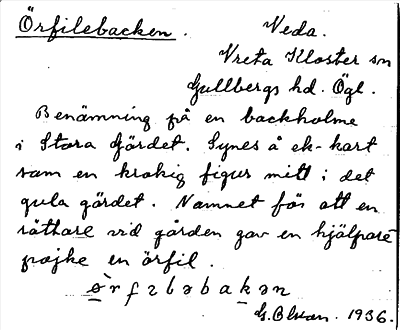 Örfilebacken. Veda.
Vreta Kloster sn
Gullbergs hd. Ögl.
Benämning på en backholme
i Stora Gärdet. Synes å ek-kart
som en krokig figur mitt i det
gula gärdet. Namnet för att en
rättare vid gården gav en hjälpare
pojke en örfil.
1936.